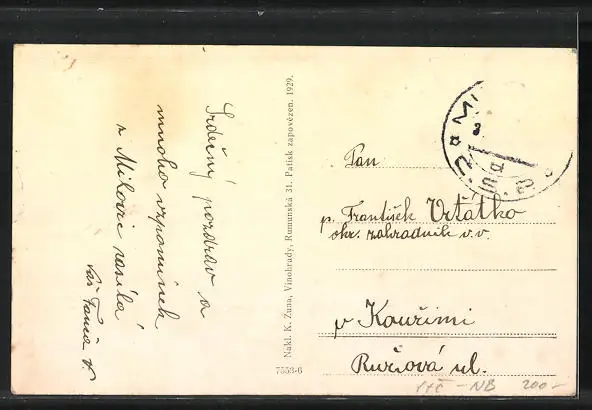 Srdečný pozdrav a
mnoho vzpomínek
z Milovic zasílá
Váš Fanča V.
Nákl. K. Žuna, Vinohrady, Rumunská 31. Patisk zapovězen. 1929.
7553-6
Pan
p. František Vrťátko
okr. zahradník v.v.
v Kouřimi
Ružiová ul.
NB 200-